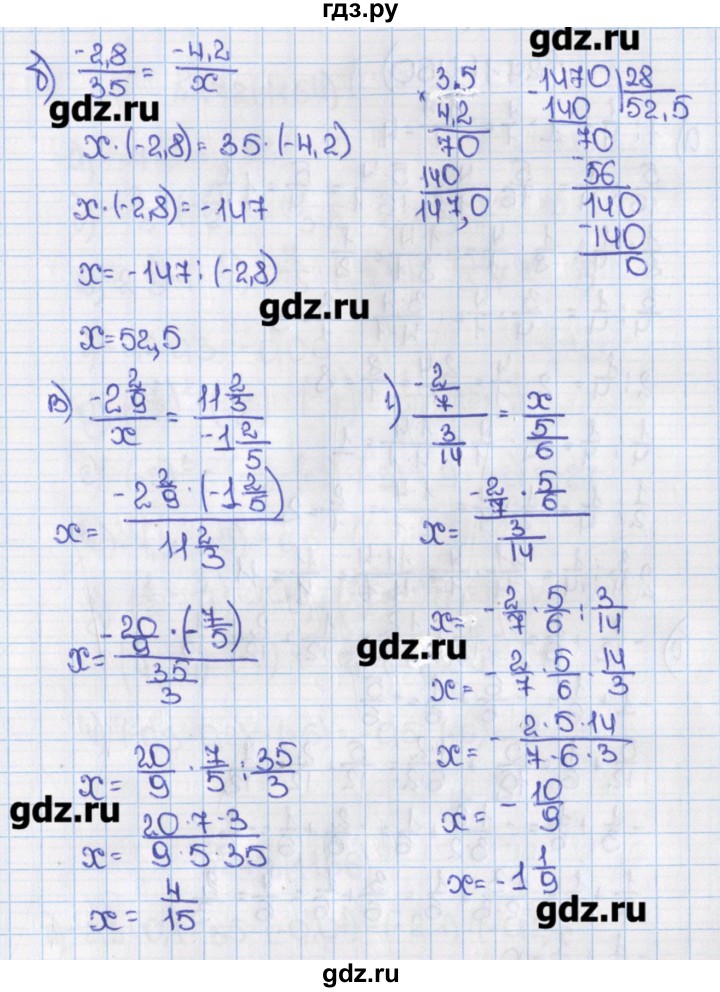 гдз.ру
б) -2,8/35 = -4,2/x
x·(-2,8) = 35·(-4,2)
x·(-2,8) = -147
x = -147 : (-2,8)
x = 52,5
3,5
× 4,2
70
140
147,0
-1470 | 28
140 | 52,5
-70
56
140
-140
0
gdz.ru
gdz.ru
в) -2 2/9 / x = 11 2/3 / -1 2/5
x = -2 2/9 · (-1 2/5) / 11 2/3
x = -20/9 · (-7/5) / 35/3
x = 20/9 · 7/5 : 35/3
x = 20·7·3 / 9·5·35
x = 4/15
г) -2/7 / 3/14 = x / 5/6
x = -2/7 · 5/6 / 3/14
x = -2/7 · 5/6 : 3/14
x = -2/7 · 5/6 · 14/3
x = - 2·5·14 / 7·6·3
x = - 10/9
x = -1 1/9
gdz.ru
gdz.ru
gdz.ru
gdz.ru
gdz.ru